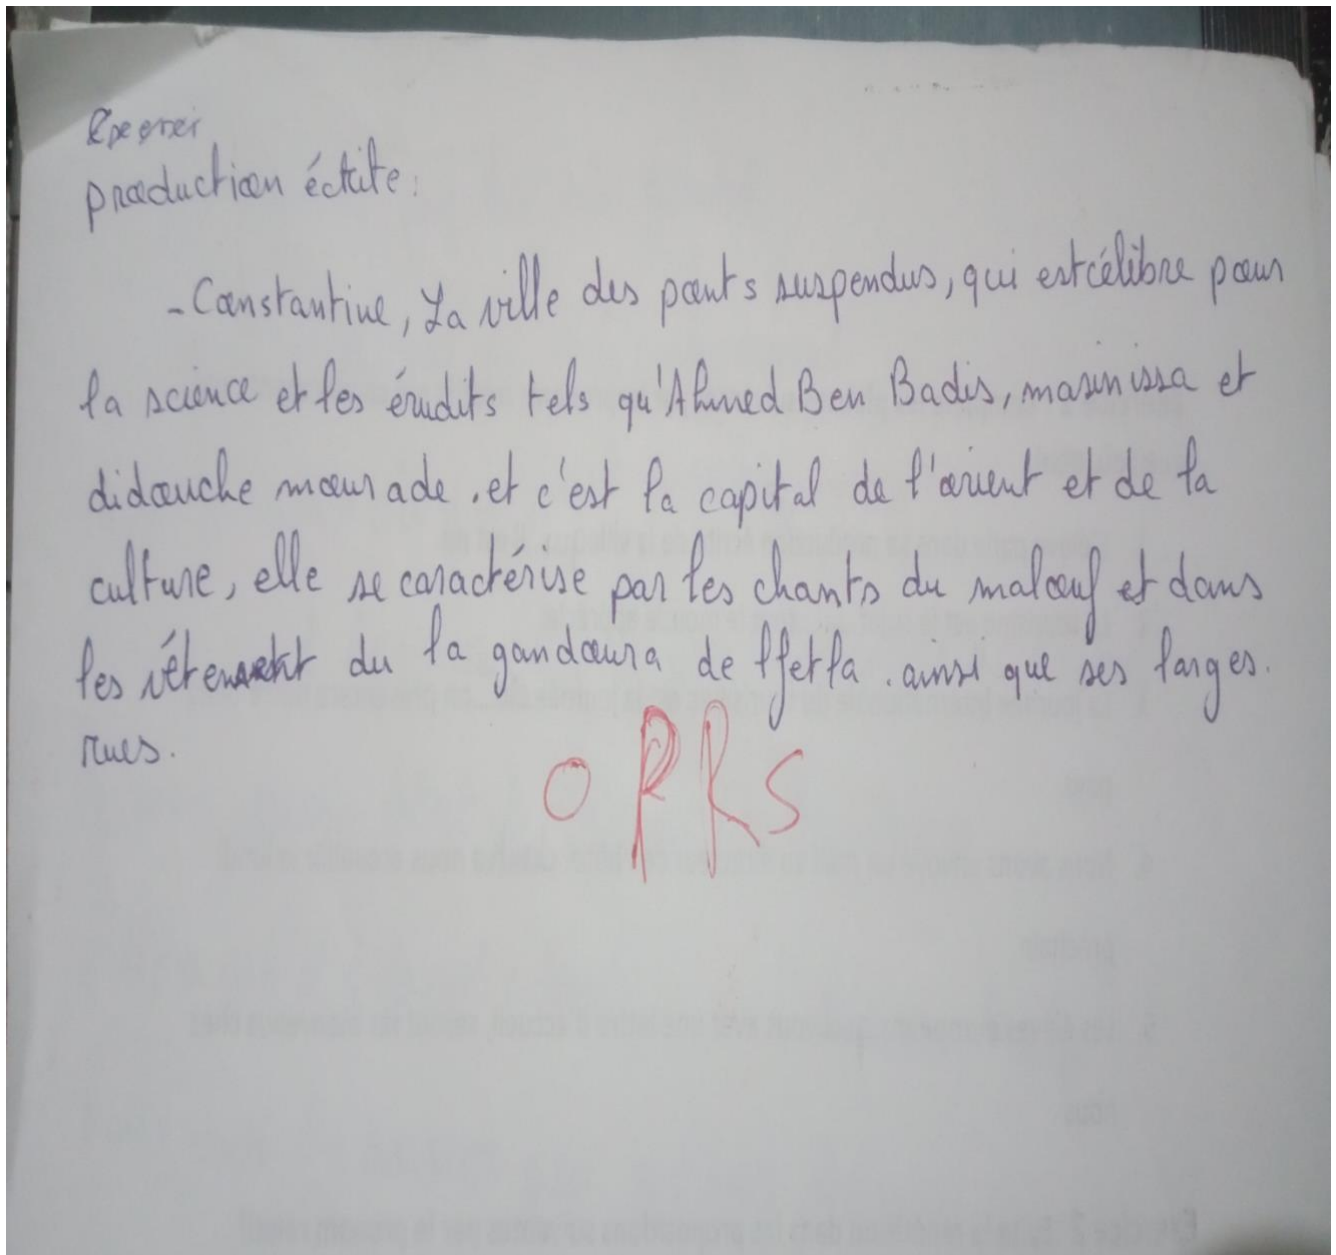 production éctite:
- Constantine, La ville des ponts suspendus, qui est célibre pour
la science et les érudits tels qu'Ahmed Ben Badis, masinissa et
didouche mourade . et c'est la capital de l'orient et de la
culture, elle se caractérise par les chants du malouf et dans
les vêtement du la gandoura de lfetla . ainsi que ses larges.
rues.
O P R S